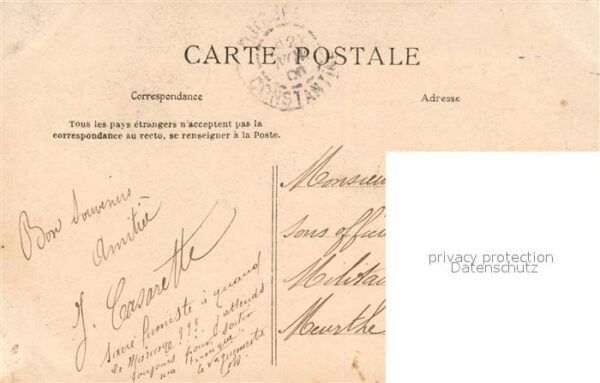 CARTE POSTALE
CONSTANTINE
Correspondance
Adresse
Tous les pays étrangers n'acceptent pas la
correspondance au recto, se renseigner à la Poste.
Bon Souvenirs
Amitié
J. Casarette
Sacré fumiste à quand
le mariage ???
toujours pour
le vaguemestre
Monsieur
sous offici
Milita
Meurthe
privacy protection
Datenschutz